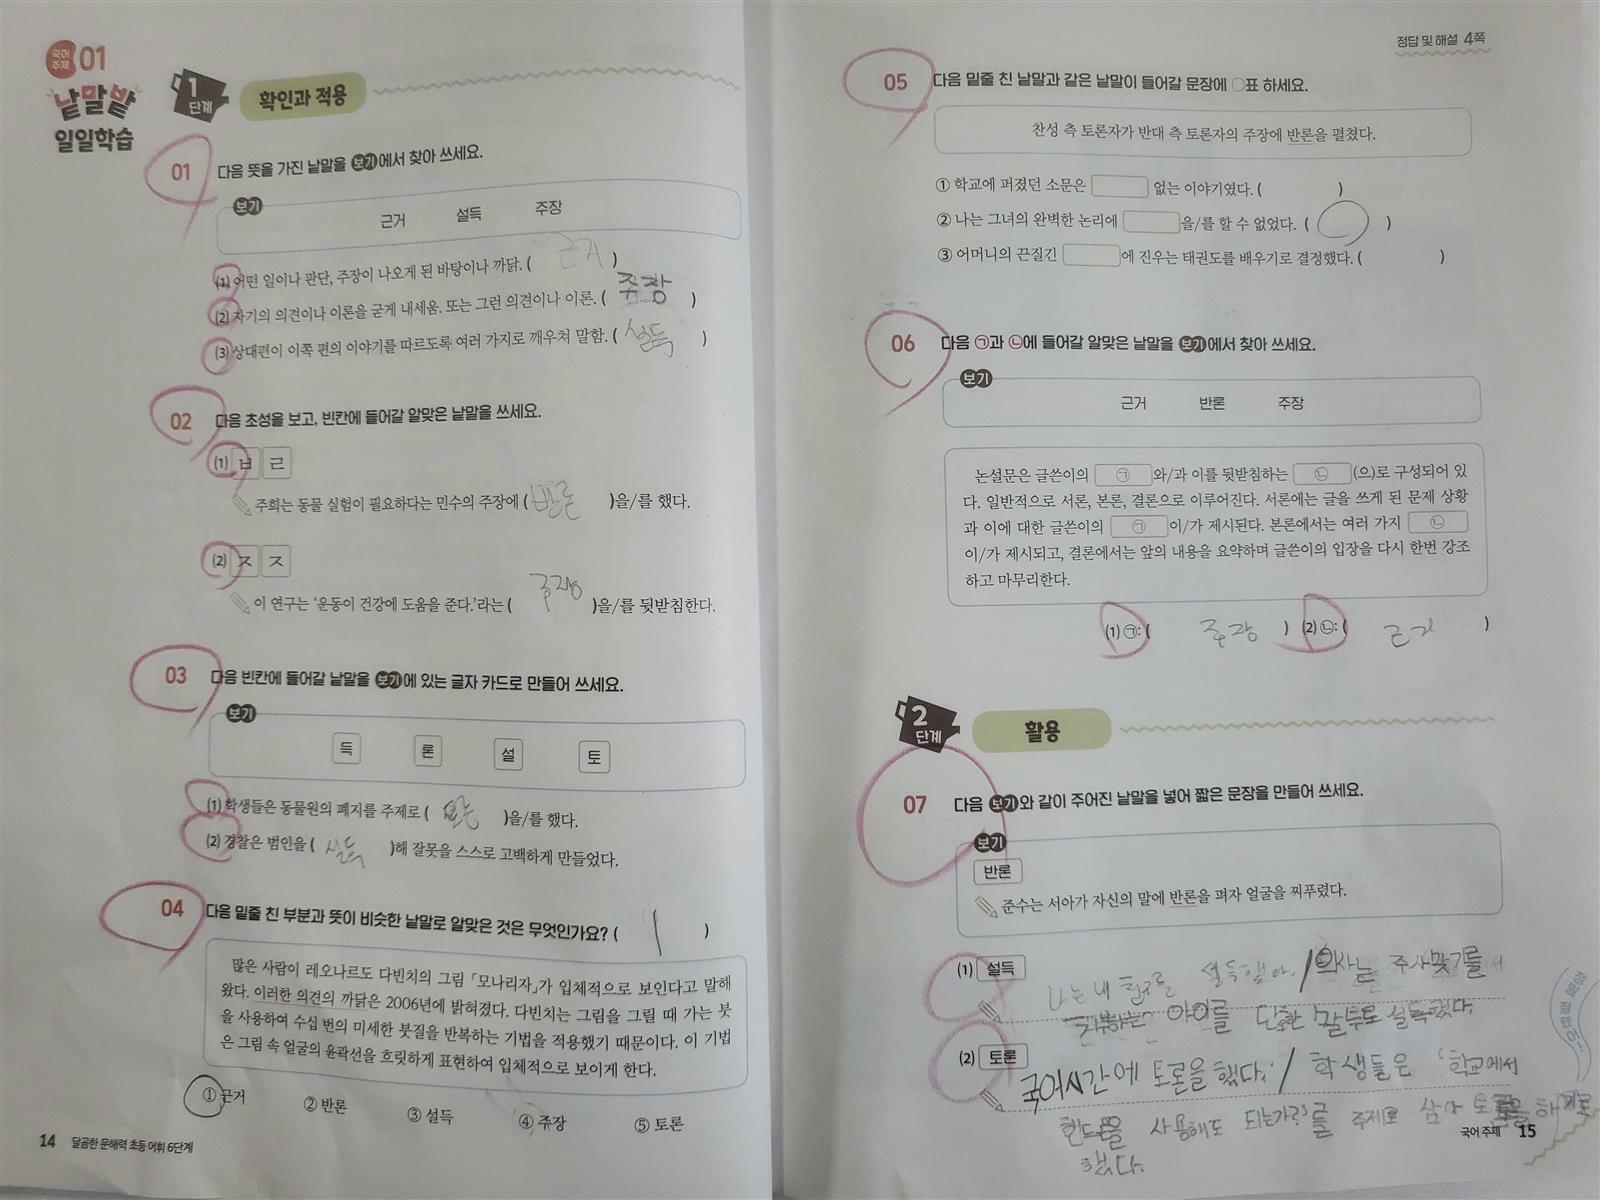 국어 주제 01
낱말밭
일일학습
1단계 확인과 적용
01 다음 뜻을 가진 낱말을 보기에서 찾아 쓰세요.
보기
근거 설득 주장
(1) 어떤 일이나 판단, 주장이 나오게 된 바탕이나 까닭. ( 근거 )
(2) 자기의 의견이나 이론을 굳게 내세움. 또는 그런 의견이나 이론. ( 주장 )
(3) 상대편이 이쪽 편의 이야기를 따르도록 여러 가지로 깨우쳐 말함. ( 설득 )
02 다음 초성을 보고, 빈칸에 들어갈 알맞은 낱말을 쓰세요.
(1) ㅂ ㄹ
주희는 동물 실험이 필요하다는 민수의 주장에 ( 반론 )을/를 했다.
(2) ㅈ ㅈ
이 연구는 '운동이 건강에 도움을 준다.'라는 ( 주장 )을/를 뒷받침한다.
03 다음 빈칸에 들어갈 낱말을 보기에 있는 글자 카드로 만들어 쓰세요.
보기
득 론 설 토
(1) 학생들은 동물원의 폐지를 주제로 ( 토론 )을/를 했다.
(2) 경찰은 범인을 ( 설득 )해 잘못을 스스로 고백하게 만들었다.
04 다음 밑줄 친 부분과 뜻이 비슷한 낱말로 알맞은 것은 무엇인가요? ( 1 )
많은 사람이 레오나르도 다빈치의 그림 「모나리자」가 입체적으로 보인다고 말해
왔다. 이러한 의견의 까닭은 2006년에 밝혀졌다. 다빈치는 그림을 그릴 때 가는 붓
을 사용하여 수십 번의 미세한 붓질을 반복하는 기법을 적용했기 때문이다. 이 기법
은 그림 속 얼굴의 윤곽선을 흐릿하게 표현하여 입체적으로 보이게 한다.
① 근거 ② 반론 ③ 설득 ④ 주장 ⑤ 토론
14 달곰한 문해력 초등 어휘 6단계
정답 및 해설 4쪽
05 다음 밑줄 친 낱말과 같은 낱말이 들어갈 문장에 ○표 하세요.
찬성 측 토론자가 반대 측 토론자의 주장에 반론을 펼쳤다.
① 학교에 퍼졌던 소문은 없는 이야기였다. ( )
② 나는 그녀의 완벽한 논리에 을/를 할 수 없었다. ( ○ )
③ 어머니의 끈질긴 에 진우는 태권도를 배우기로 결정했다. ( )
06 다음 ㉠과 ㉡에 들어갈 알맞은 낱말을 보기에서 찾아 쓰세요.
보기
근거 반론 주장
논설문은 글쓴이의 ㉠ 와/과 이를 뒷받침하는 ㉡ (으)로 구성되어 있
다. 일반적으로 서론, 본론, 결론으로 이루어진다. 서론에는 글을 쓰게 된 문제 상황
과 이에 대한 글쓴이의 ㉠ 이/가 제시된다. 본론에서는 여러 가지 ㉡
이/가 제시되고, 결론에서는 앞의 내용을 요약하며 글쓴이의 입장을 다시 한번 강조
하고 마무리한다.
(1) ㉠: ( 주장 ) (2) ㉡: ( 근거 )
2단계 활용
07 다음 보기와 같이 주어진 낱말을 넣어 짧은 문장을 만들어 쓰세요.
보기
반론
준수는 서아가 자신의 말에 반론을 펴자 얼굴을 찌푸렸다.
(1) 설득
나는 내 친구를 설득했다. / 의사는 주사맞기를
거부하는 아이를 단호한 말투로 설득했다.
(2) 토론
국어시간에 토론을 했다. / 학생들은 '학교에서
핸드폰을 사용해도 되는가?'를 주제로 삼아 토론을
했다.
국어 주제 15